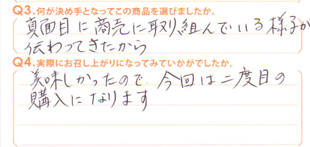 Q3.何が決め手となってこの商品を選びましたか。
真面目に商売に取り組んでいる様子が
伝わってきたから
Q4.実際にお召し上がりになってみていかがでしたか。
美味しかったので、今回は二度目の
購入になります